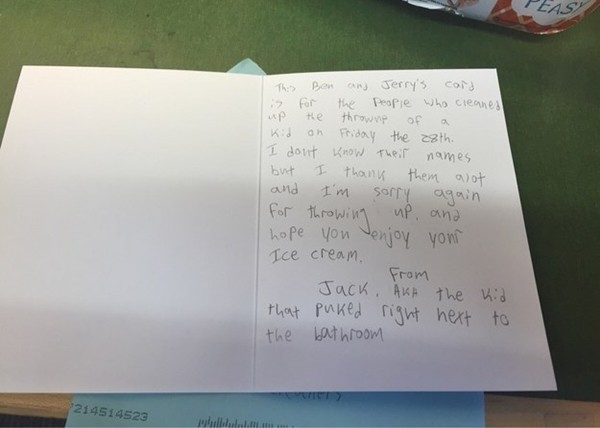 PEAS
This Ben and Jerry's card
is for the People who cleaned
up the throwup of a
kid on Friday the 28th.
I dont know their names
but I thank them alot
and I'm sorry again
for throwing up. and
hope you enjoy your
Ice cream.
From
Jack. AKA the kid
that puked right next to
the bathroom
214514523